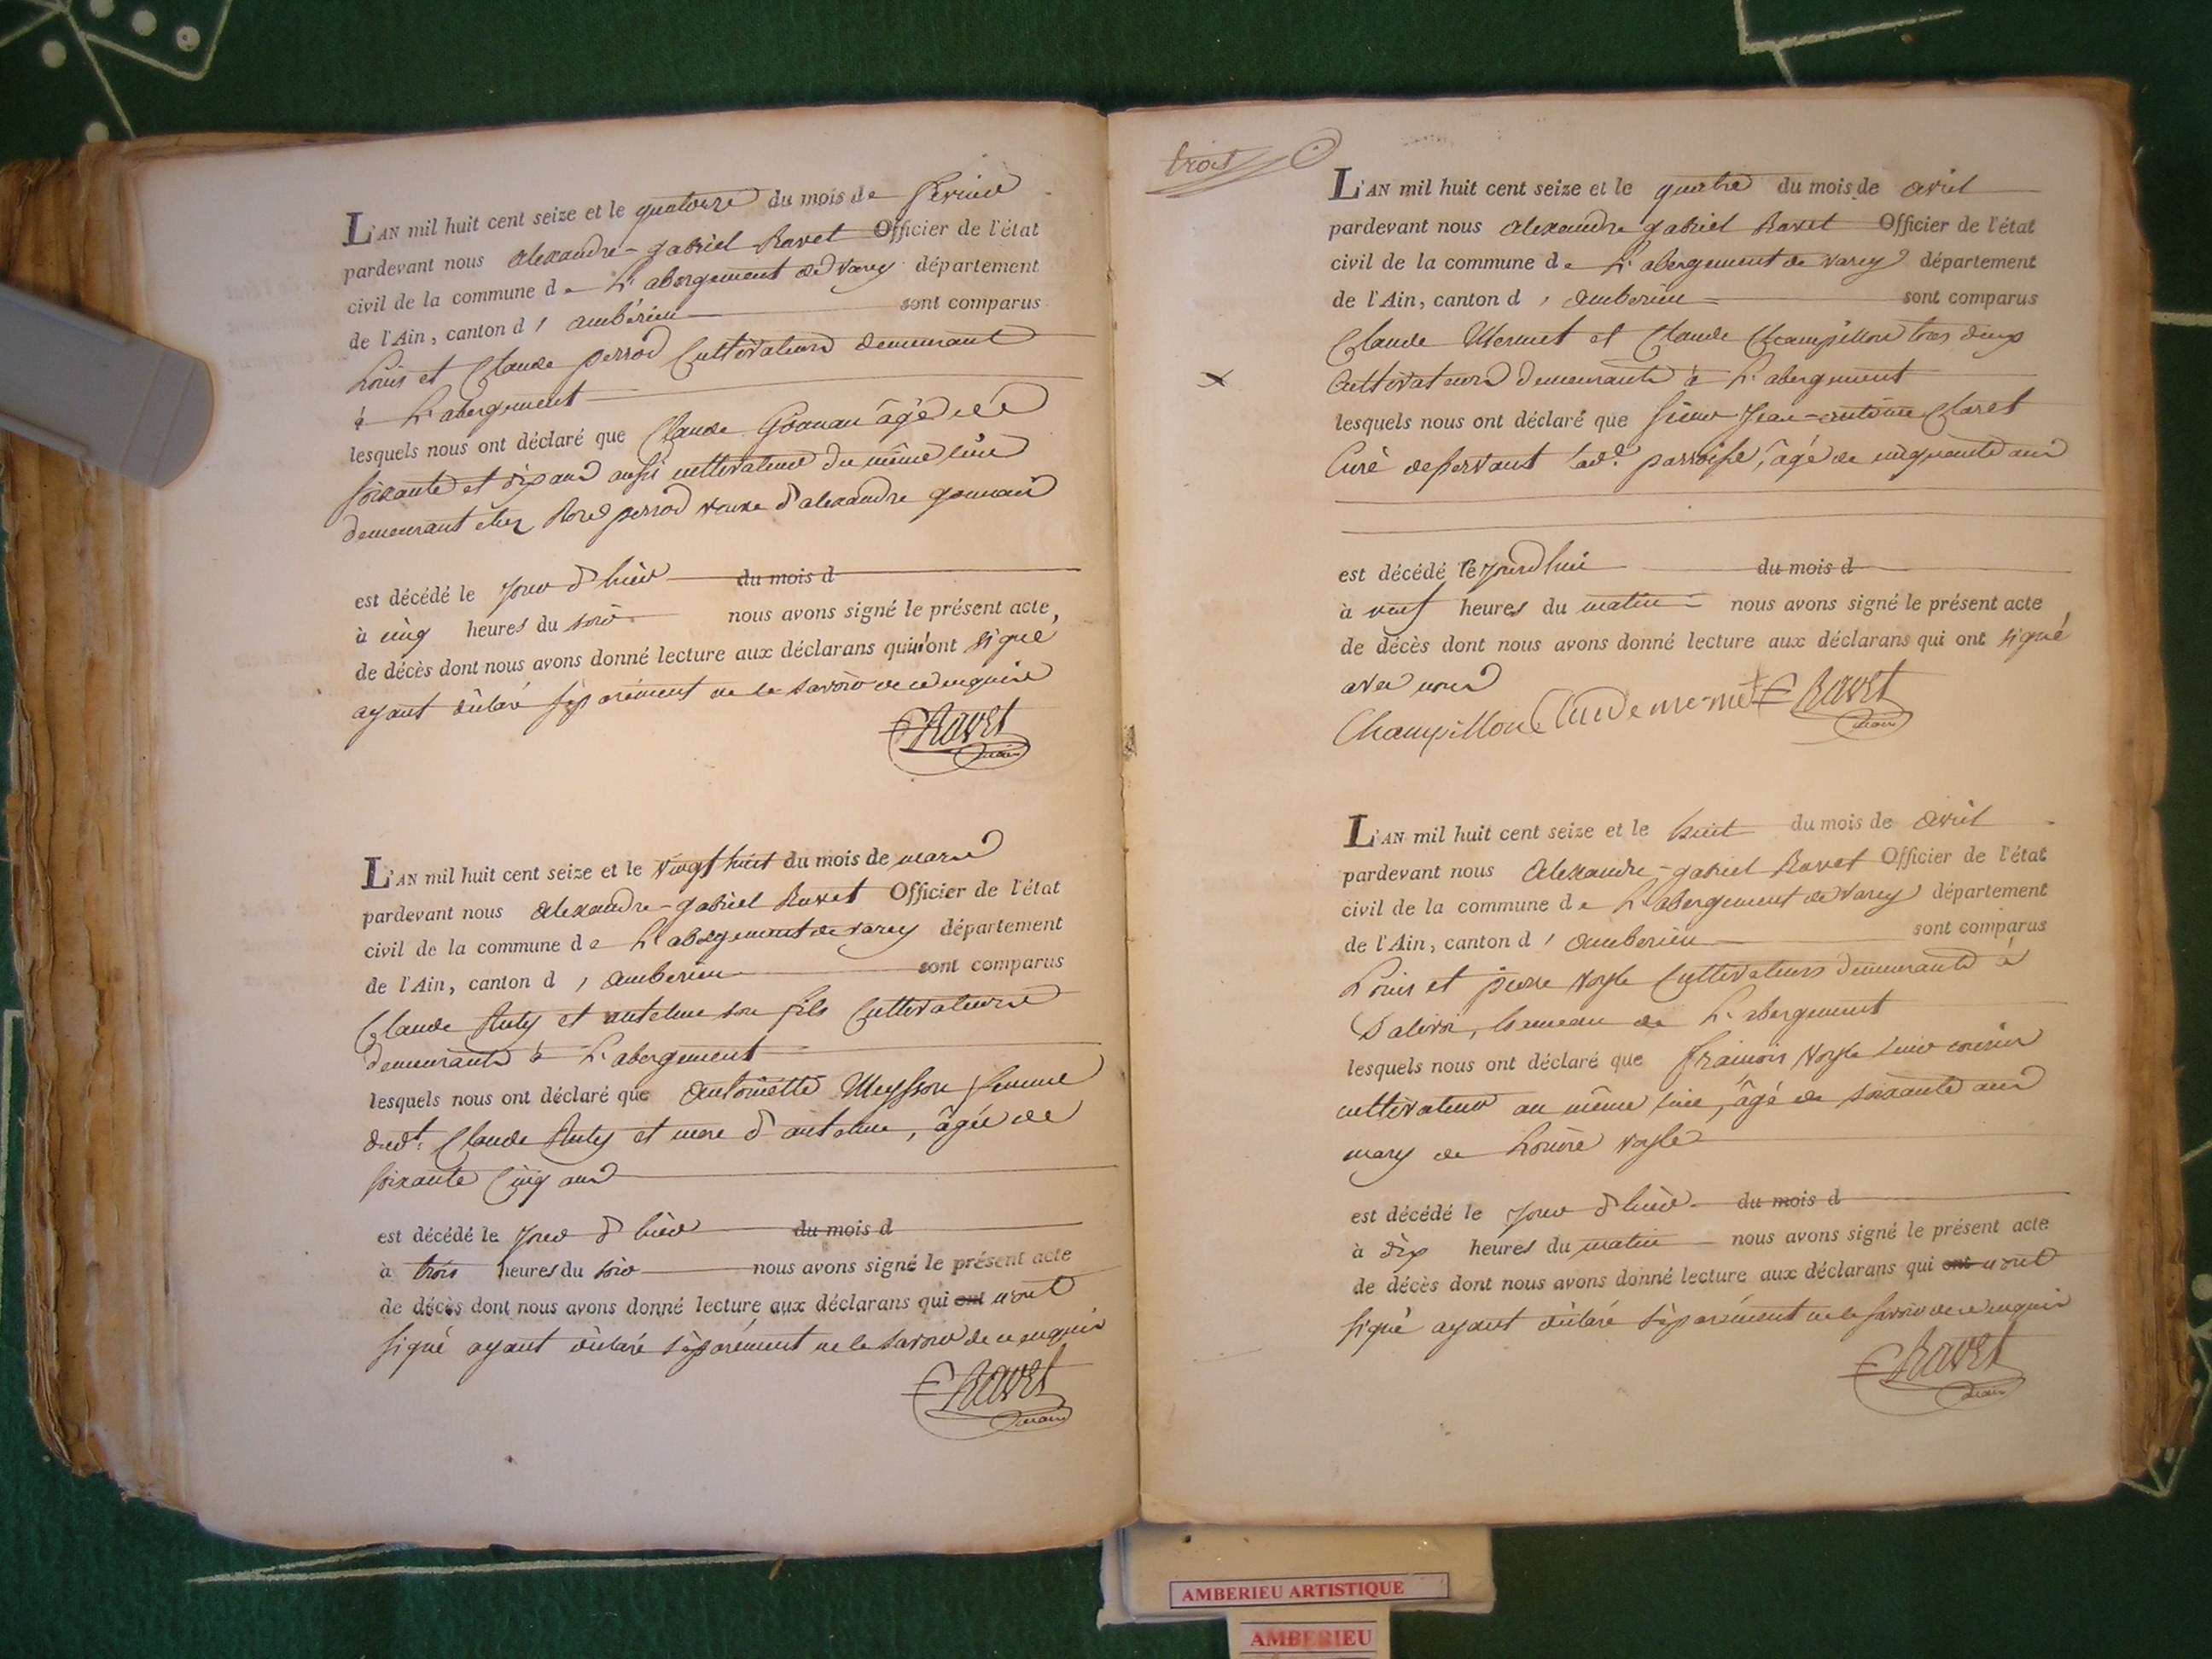 L'AN mil huit cent seize et le quatorze du mois de fevrier
pardevant nous alexandre-gabriel Ravet Officier de l'état
civil de la commune de L'abergement de varey département
de l'Ain, canton d'ambérieu sont comparus
Louis et Claude perrod Cultivateurs demeurant
à L'abergement
lesquels nous ont déclaré que Claude âgé de
soixante et dix ans aussi cultivateur du même lieu
demeurant chez perrod veuve d'alexandre
est décédé le jour d'hier du mois d
à cinq heures du soir nous avons signé le présent acte,
de décès dont nous avons donné lecture aux déclarans qui n'ont signé
ayant déclaré séparément ne le savoir de ce enquis
Ravet
maire
L'AN mil huit cent seize et le vingt huit du mois de mars
pardevant nous alexandre-gabriel Ravet Officier de l'état
civil de la commune de L'abergement de varey département
de l'Ain, canton d'amberieu sont comparus
Claude et antelme son fils Cultivateurs
demeurants à L'abergement
lesquels nous ont déclaré que antoinette femme
dudt. Claude et mere d'antelme, âgée de
soixante Cinq ans
est décédé le jour d'hier du mois d
à trois heures du soir nous avons signé le présent acte
de décès dont nous avons donné lecture aux déclarans qui ont n'ont
signé ayant déclaré séparément ne le savoir de ce enquis
Ravet
maire
trois
L'AN mil huit cent seize et le quatre du mois de avril
pardevant nous alexandre gabriel Ravet Officier de l'état
civil de la commune de L'abergement de varey département
de l'Ain, canton d'amberieu sont comparus
Claude Mermet et Claude Champillon tous deux
Cultivateurs demeurants à L'abergement
lesquels nous ont déclaré que sieur Jean-antoine Claret
Curé desservant lade. parroisse, âgé de cinquante ans
est décédé le jourd'hui du mois d
à neuf heures du matin nous avons signé le présent acte
de décès dont nous avons donné lecture aux déclarans qui ont signé
avec nous
Champillon Claude mermet Ravet
maire
L'AN mil huit cent seize et le huit du mois de avril
pardevant nous Alexandre-gabriel Ravet Officier de l'état
civil de la commune de L'abergement de varey département
de l'Ain, canton d'amberieu sont comparus
Louis et pierre Cultivateurs demeurants à
hameau de L'abergement
lesquels nous ont déclaré que françois leur cousin
cultivateur au même lieu, âgé de soixante ans
mary de
est décédé le jour d'hier du mois d
à dix heures du matin nous avons signé le présent acte
de décès dont nous avons donné lecture aux déclarans qui ont n'ont
signé ayant déclaré séparément ne le savoir de ce enquis
Ravet
maire
AMBERIEU ARTISTIQUE
AMBERIEU